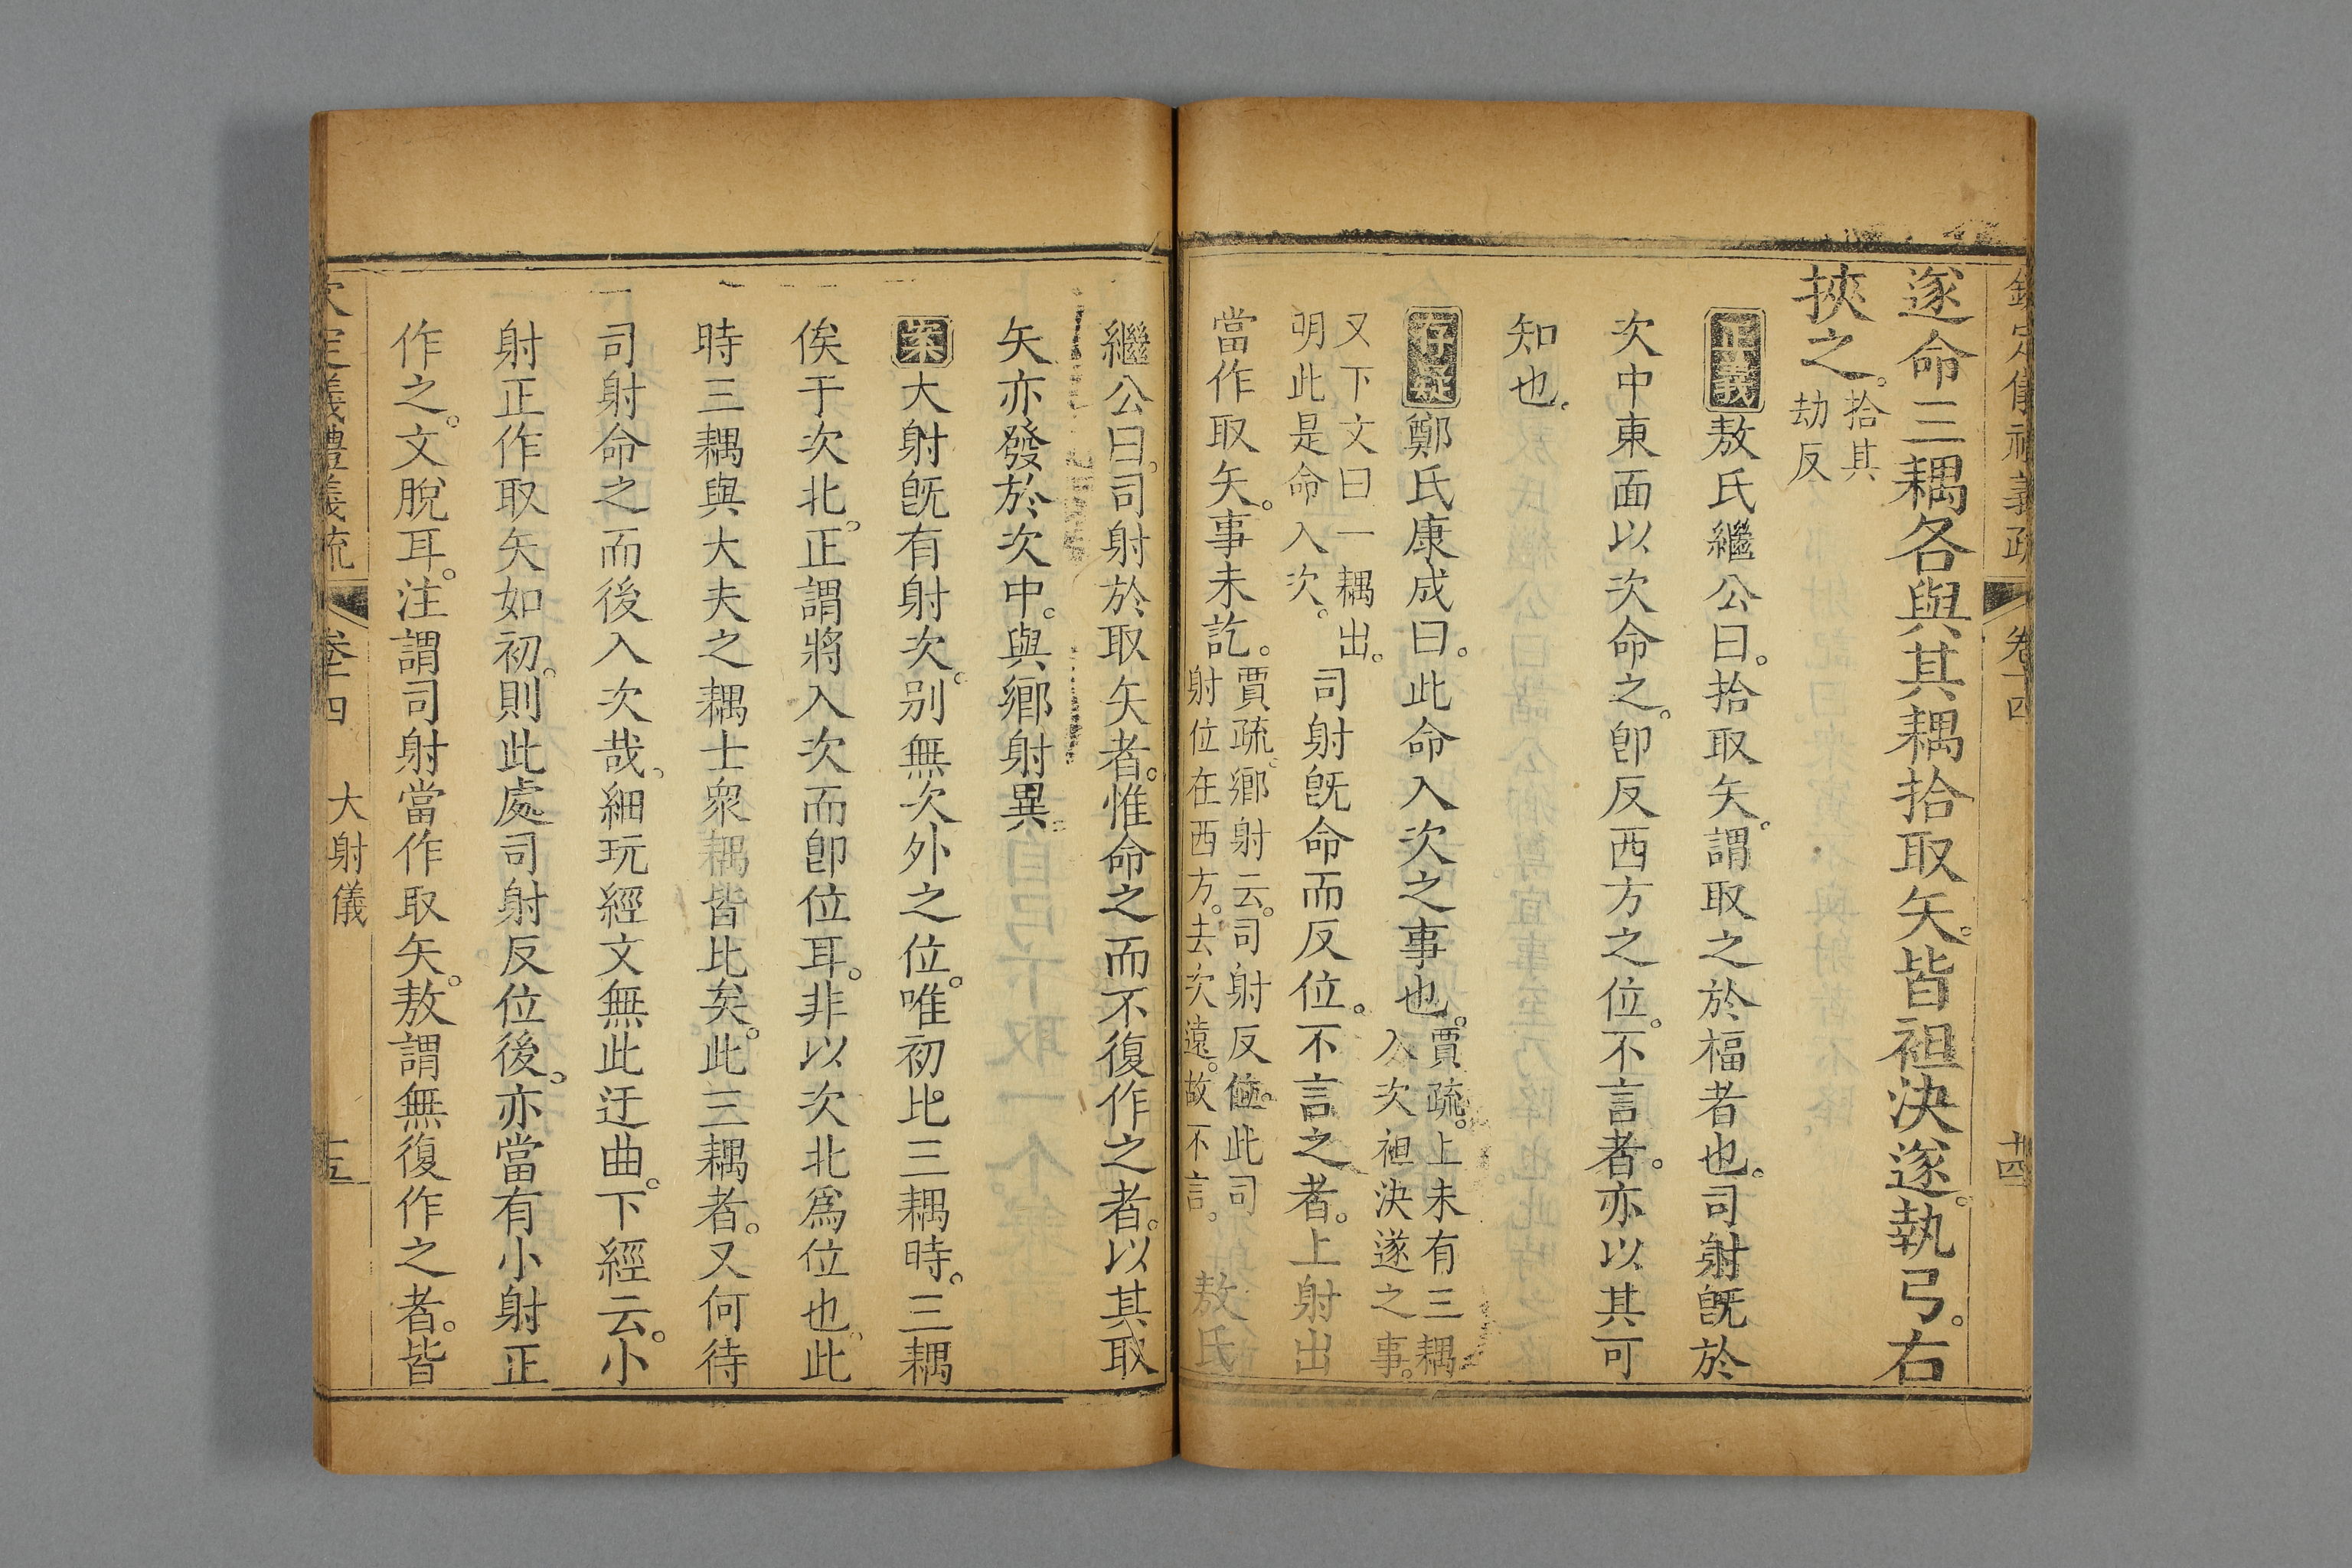 欽定儀禮義疏 卷十四 十四
遂命三耦各與其耦拾取矢。皆袒決遂。執弓。右
挾之。拾其劫反
正義敖氏繼公曰。拾取矢。謂取之於楅者也。司射旣於
次中東面以次命之。卽反西方之位。不言者。亦以其可
知也。
存疑鄭氏康成曰。此命入次之事也。賈疏。上未有三耦入次袒決遂之事。
又下文曰一耦出。明此是命入次。司射旣命而反位。不言之者。上射出
當作取矢。事未訖。賈疏。鄉射云。司射反位。此司射位在西方。去次遠。故不言。敖氏
繼公曰。司射於取矢者。惟命之而不復作之者。以其取
矢亦發於次中。與鄉射異。
案大射旣有射次。別無次外之位。唯初比三耦時。三耦
俟于次北。正謂將入次而卽位耳。非以次北爲位也。此
時三耦與大夫之耦士衆耦皆比矣。此三耦者。又何待
司射命之而後入次哉。細玩經文無此迂曲。下經云。小
射正作取矢如初。則此處司射反位後。亦當有小射正
作之。文脫耳。注謂司射當作取矢。敖謂無復作之者。皆
欽定儀禮義疏 卷十四 大射儀 十五